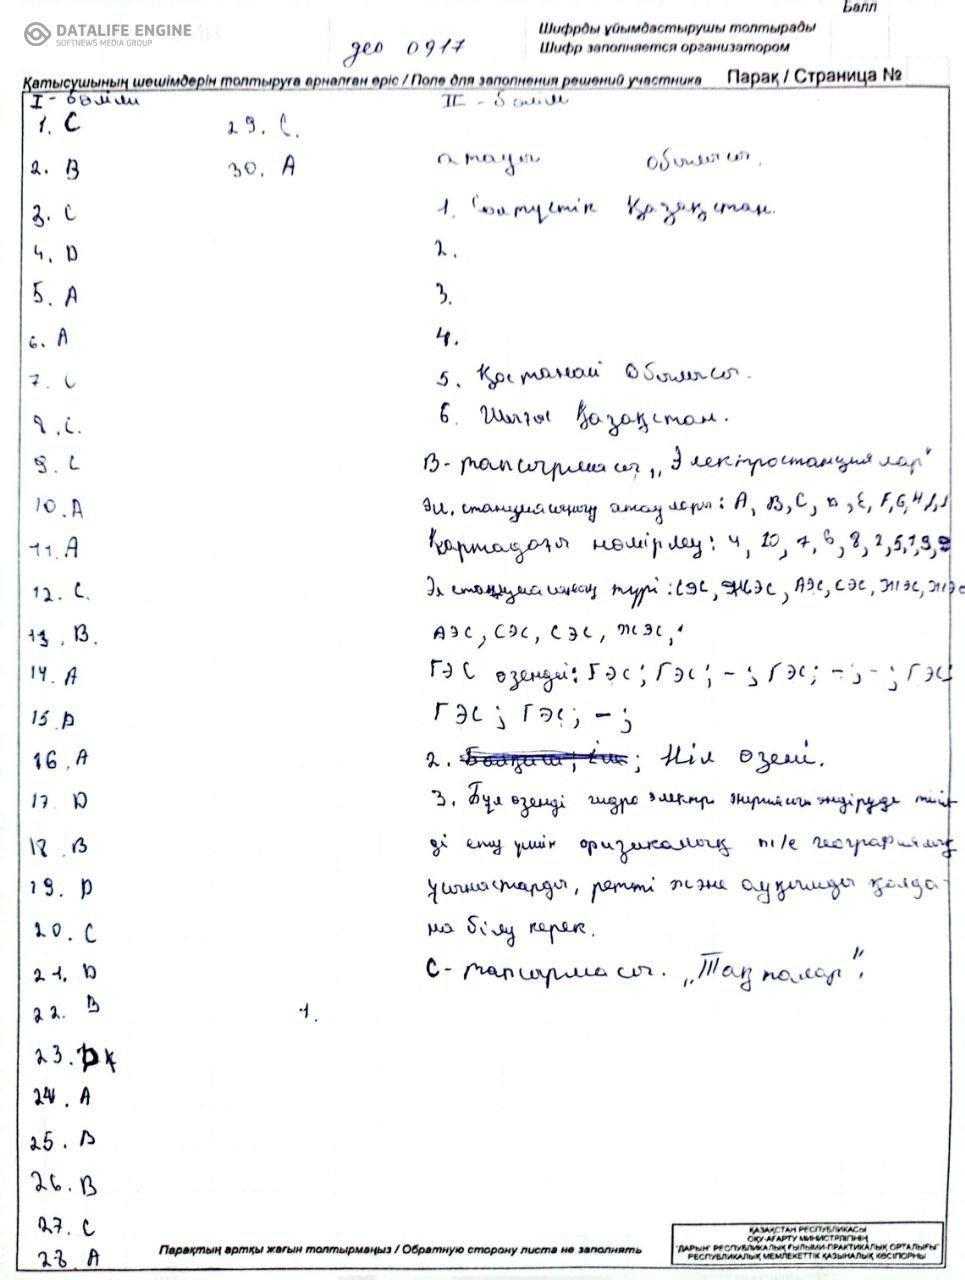 Балл
DATALIFE ENGINE
SOFTNEWS MEDIA GROUP
Шифрды ұйымдастырушы толтырады
гео 0917
Шифр заполняется организатором
Қатысушының шешімдерін толтыруға арналған өріс / Поле для заполнения решений участника Парақ / Страница №
I - бөлім
1. C
2. B
3. C
4. D
5. A
6. A
7. C
8. C.
9. C
10. A
11. A
12. C.
13. B.
14. A
15. D
16. A
17. D
18. B
19. D
20. C
21. D
22. B
23.
24. A
25. B
26. B
27. C
28. A
29. C.
30. A
1.
II - бөлім
атауы облысы.
1. Солтүстік Қазақстан.
2.
3.
4.
5. Қостанай облысы.
6. Шығыс Қазақстан.
B - тапсырмасы „Электростанциялар"
Эл. станцияның атаулары: A, B, C, D, E, F, G, H, I, J
Картадағы нөмірлеу: 4, 10, 7, 6, 8, 2, 5, 1, 3, 9
Эл станцияның түрі: СЭС, ЖЭС, АЭС, СЭС, ЖЭС, ЖЭС
АЭС, СЭС, СЭС, ЖЭС,
ГЭС өзендегі: ГЭС; ГЭС; -; ГЭС; -; -; ГЭС
ГЭС; ГЭС; -;
2. ; Ніл өзені.
3. Бұл өзенді гидро электр энергиясын өндіруде тиім
ді ету үшін физикалық т/е географиялық
ұсыныстарды, ретті және ауқымды қолда-
на білу керек.
C - тапсырмасы. „Тақпалар".
Парақтың артқы жағын толтырмаңыз / Обратную сторону листа не заполнять
ҚАЗАҚСТАН РЕСПУБЛИКАСЫ
ОҚУ-АҒАРТУ МИНИСТРЛІГІНІҢ
"ДАРЫН" РЕСПУБЛИКАЛЫҚ ҒЫЛЫМИ-ПРАКТИКАЛЫҚ ОРТАЛЫҒЫ"
РЕСПУБЛИКАЛЫҚ МЕМЛЕКЕТТІК ҚАЗЫНАЛЫҚ КӘСІПОРНЫ